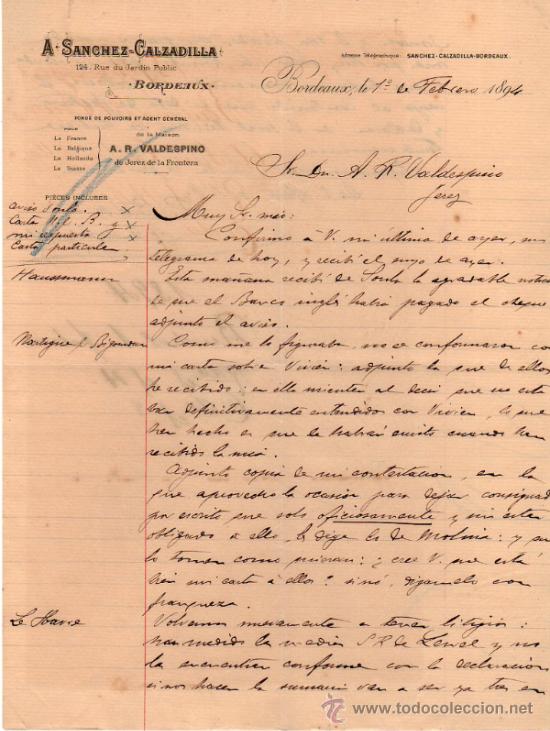 A. SANCHEZ-CALZADILLA
124. Rue du Jardin Public
BORDEAUX
Adresse Télégraphique: SANCHEZ-CALZADILLA-BORDEAUX.
Bordeaux, le 1º de Febrero 1894
FONDÉ DE POUVOIRS ET AGENT GÉNÉRAL
POUR
La France
La Belgique
La Hollande
La Suisse
de la Maison
A. R. VALDESPINO
de Jerez de la Frontera
Sr. Dn. A. R. Valdespino
Jerez
PIÈCES INCLUSES
aviso
Carta B. y
mi respuesta
Carta particular
Muy Sr. mio:
Confirmo á V. mi última de ayer, mi
telegrama de hoy, y recibí el suyo de ayer.
Haussmann
Esta mañana recibí de la agradable noticia
de que el Banco inglés habia pagado el cheque
adjunto el aviso.
Como me lo figuraba, no se conformaron con
mi carta sobre Vivien: adjunto la que de ellos
he recibido: en ella mienten al decir que no esta
ban definitivamente entendidos con Vivien, lo que
han hecho es que le habrán escrito cuando han
recibido la mia.
Adjunto copia de mi contestacion, en la
que aprovecho la ocasión para dejar consignado
por escrito que solo oficiosamente y sin estar
obligado á ello, le dije lo de Molina: y que
lo toman como quieran: ¿cree V. que está
bien mi carta á ellos? sinó, digamelo con
franqueza.
Le Havre
Volvamos nuevamente a tener litigios:
han medido la media de y no
la encuentran conforme con la declaracion
si nos hacen la sumaria van a ser ya tres en
todocoleccion.net